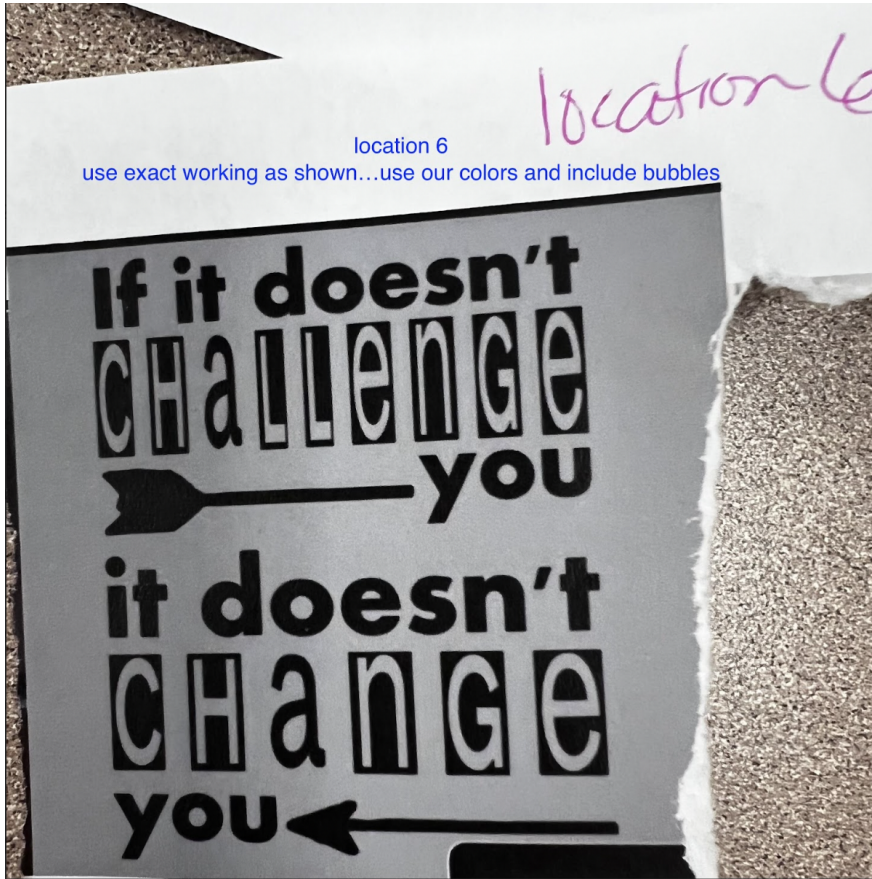 location 6
location 6
use exact working as shown...use our colors and include bubbles
If it doesn't
CHaLLenGe
you
it doesn't
CHanGe
you